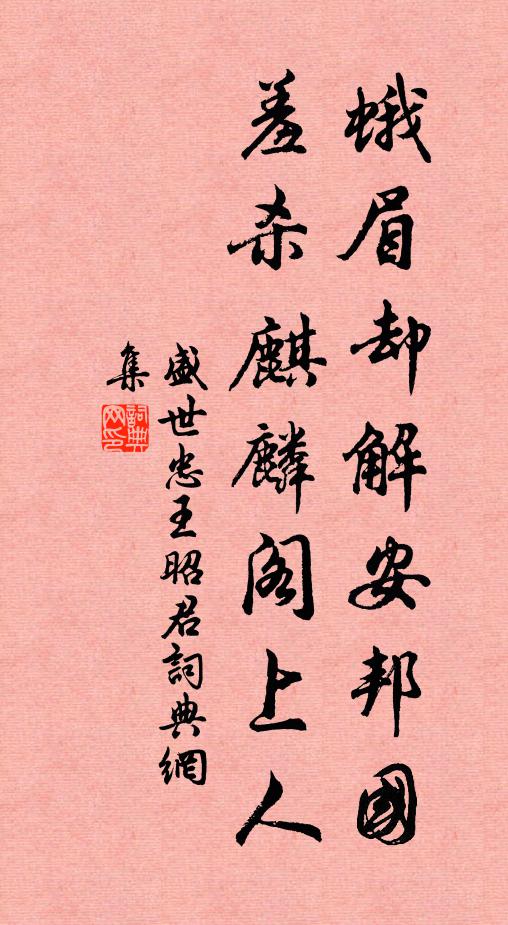 蛾眉却解安邦國
羞杀麒麟阁上人
盛世忠王昭君詞典網
集
詞典网印